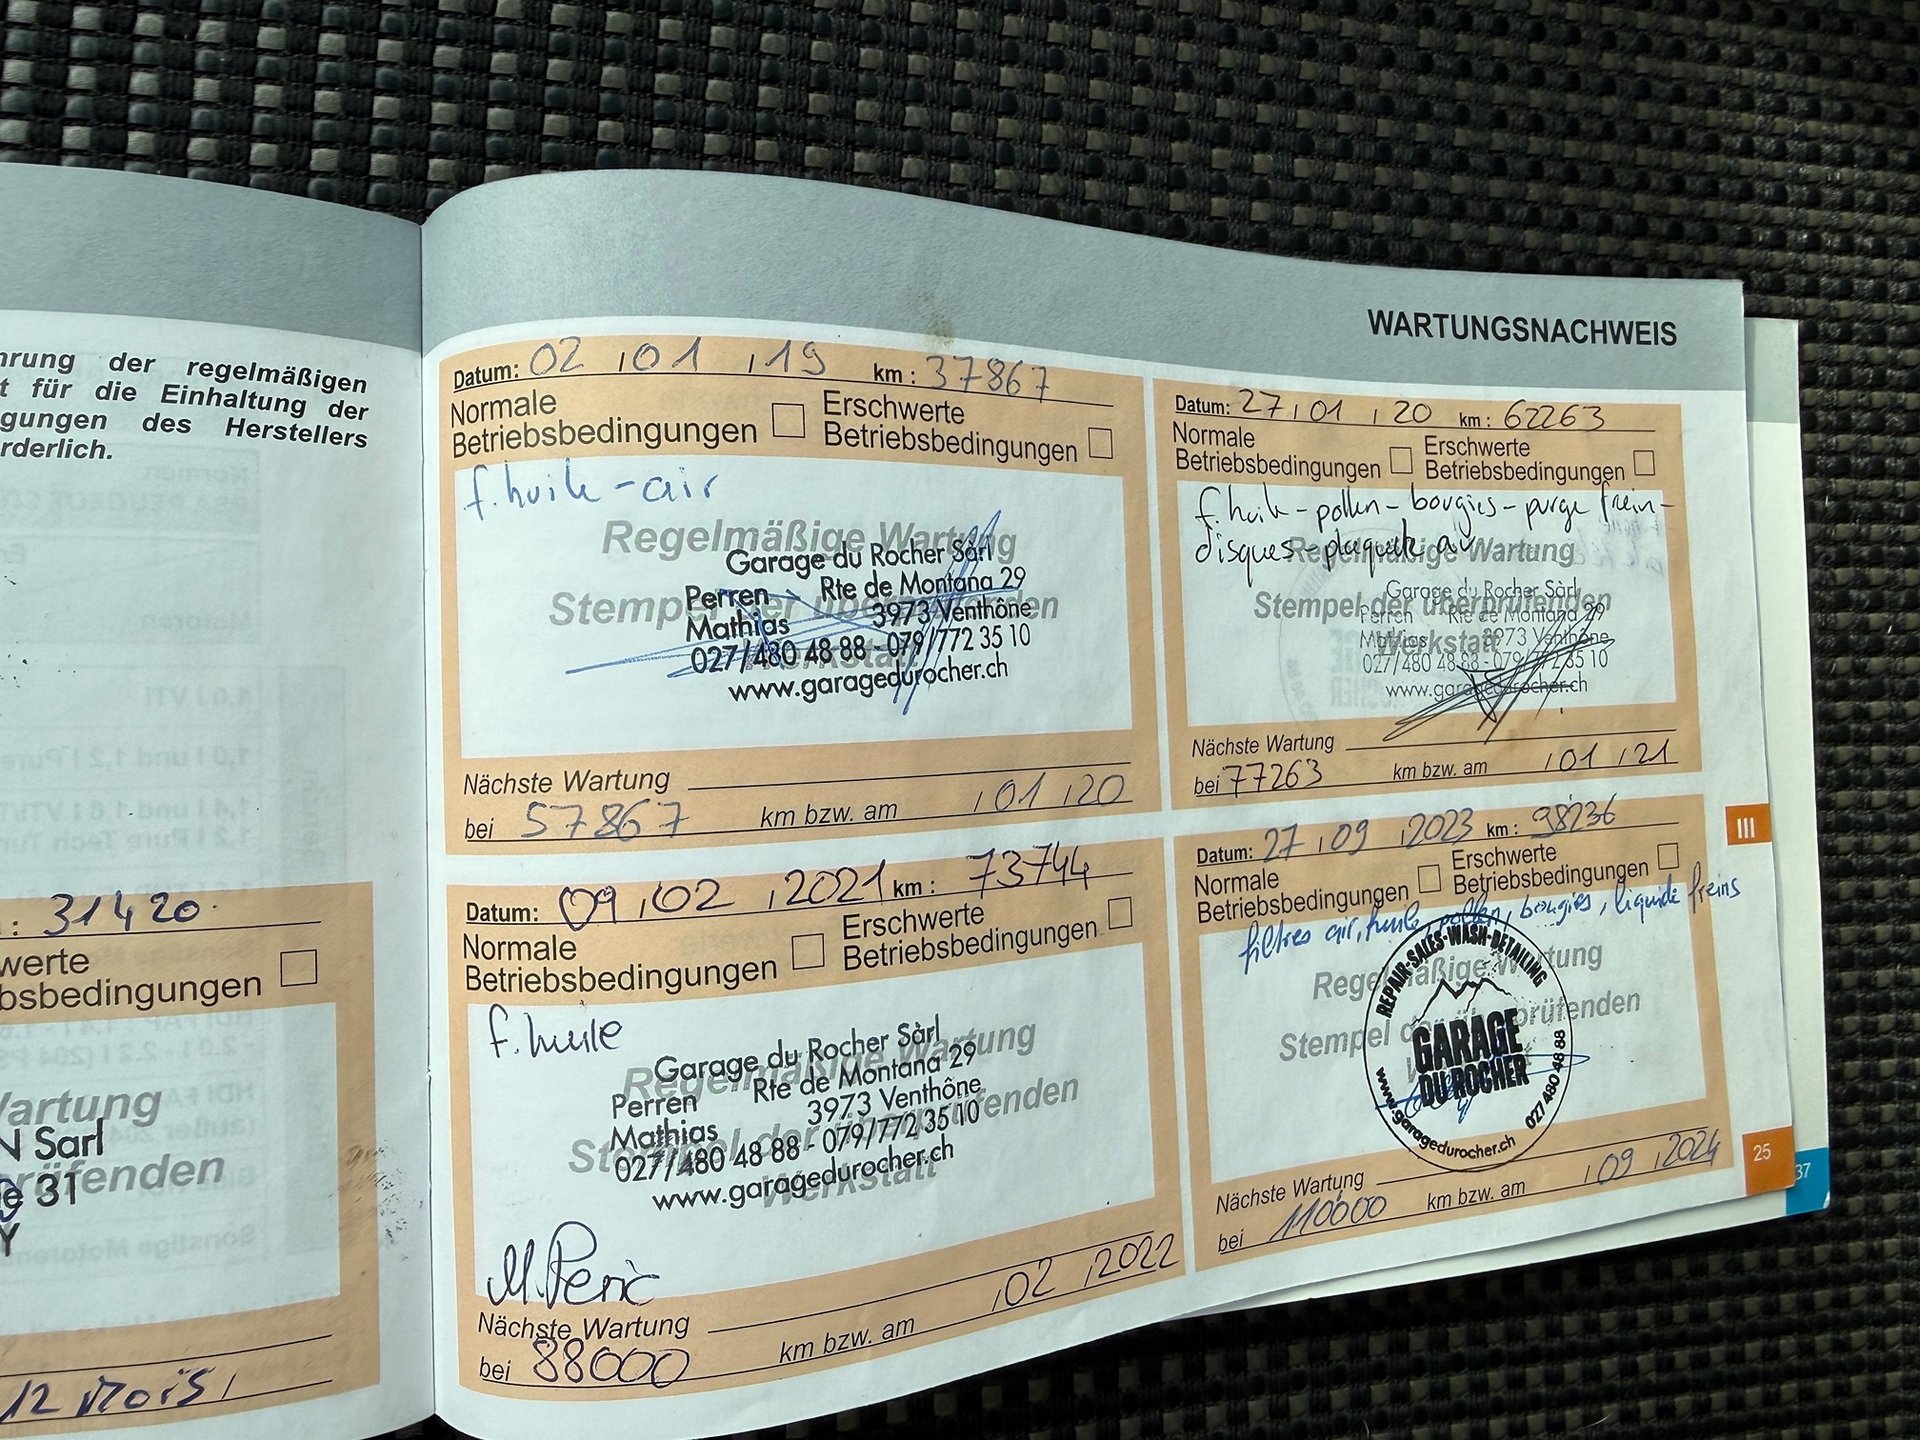 WARTUNGSNACHWEIS
hrung der regelmäßigen
t für die Einhaltung der
gungen des Herstellers
rderlich.
: 31420
werte
bsbedingungen
Wartung
N Sarl
rüfenden
e 31
Y
12 Mois
Datum: 02 01 19 km : 37867
Normale Betriebsbedingungen
Erschwerte Betriebsbedingungen
f. huile - air
Regelmäßige Wartung
Stempel der überprüfenden
Werkstatt
Garage du Rocher Sàrl
Perren Rte de Montana 29
Mathias 3973 Venthône
027/480 48 88 - 079/772 35 10
www.garagedurocher.ch
Nächste Wartung
bei 57867 km bzw. am 01 20
Datum: 27 01 20 km : 62263
Normale Betriebsbedingungen
Erschwerte Betriebsbedingungen
f. huile - pollen - bougies - purge frein -
disques - plaquette av
Regelmäßige Wartung
Stempel der überprüfenden
Werkstatt
Garage du Rocher Sàrl
Perren Rte de Montana 29
Mathias 3973 Venthône
027/480 48 88 - 079/772 35 10
www.garagedurocher.ch
Nächste Wartung
bei 77263 km bzw. am 01 21
Datum: 09 02 2021 km : 73744
Normale Betriebsbedingungen
Erschwerte Betriebsbedingungen
f. huile
Regelmäßige Wartung
Stempel der überprüfenden
Werkstatt
Garage du Rocher Sàrl
Perren Rte de Montana 29
Mathias 3973 Venthône
027/480 48 88 - 079/772 35 10
www.garagedurocher.ch
Nächste Wartung
bei 88000 km bzw. am 02 2022
Datum: 27 09 2023 km : 98236
Normale Betriebsbedingungen
Erschwerte Betriebsbedingungen
filtres air, huile, pollen, bougies, liquide freins
Regelmäßige Wartung
Stempel der überprüfenden
REPAIR-SALES-WASH-DETAILING
GARAGE
DU ROCHER
www.garagedurocher.ch 027 480 48 88
Nächste Wartung
bei 110000 km bzw. am 09 2024
III
25
37